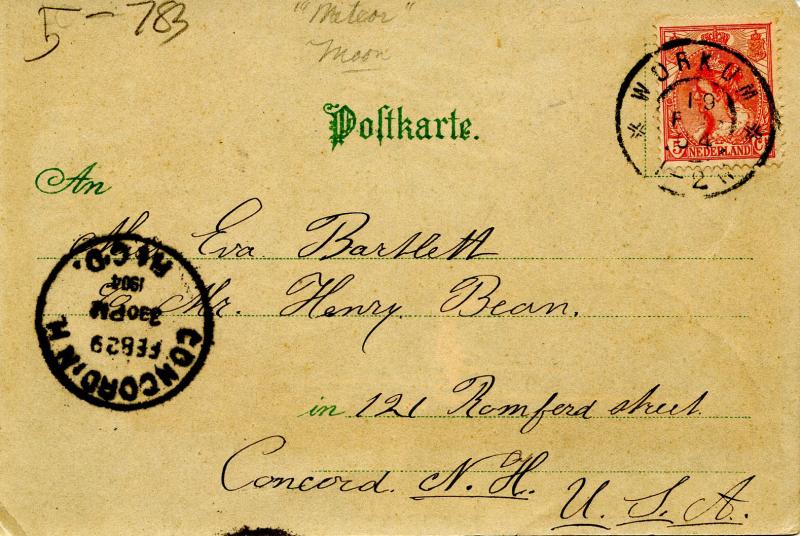 5-783
"Meteor"
Moon
Postkarte.
WORKUM
19
F
04
2N
5 C
NEDERLAND
An
Miss Eva Bartlett
C Mr. Henry Bean.
in 121 Romferd street
Concord. N.H.
U.S.A.
CONCORD, N.H.
FEB 29
330PM
1904
REC'D.